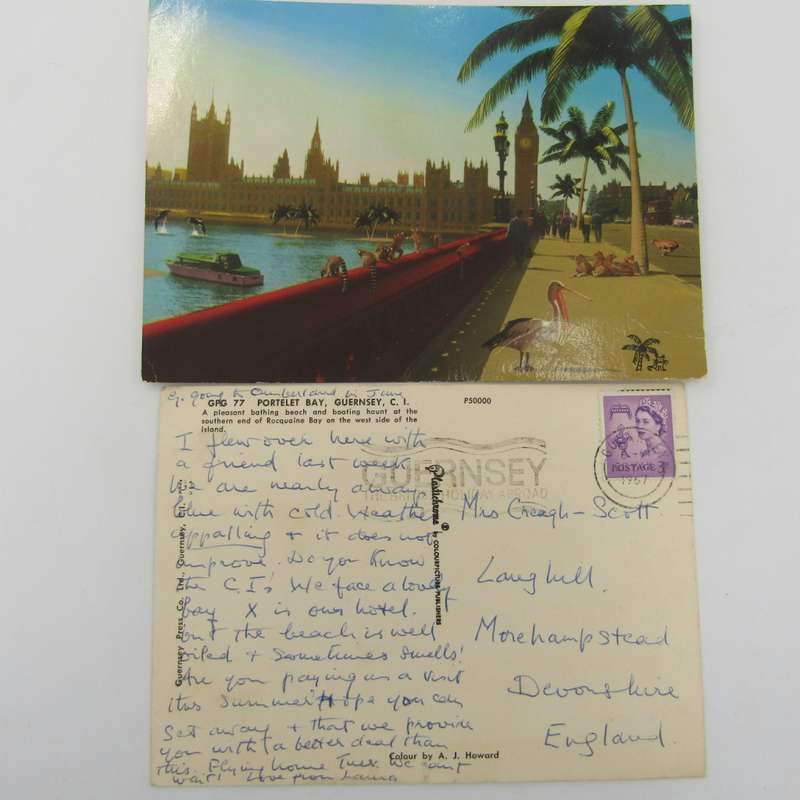 going to Cumberland in June
GPG 77 PORTELET BAY, GUERNSEY, C. I. P50000
A pleasant bathing beach and boating haunt at the
southern end of Rocquaine Bay on the west side of the
island.
I flew over here with
a friend last week
We are nearly always
blue with cold. Weather
appalling & it does not
improve. Do you know
the C.I's? We face a lovely
bay X is our hotel.
but the beach is well
oiled & sometimes smells!
Are you paying us a visit
this summer? Hope you can
get away & that we provide
you with a better deal than
this. Flying home Tues. We can't
wait! Love from Laura
Guernsey Press Co. Ltd., Guernsey, C.I.
Plastichrome ® by COLOURPICTURE PUBLISHERS
GUERNSEY
HOLIDAY ABROAD
GUERNSEY
1967
POSTAGE 3D
Mrs Creagh-Scott.
Langhill.
Morehampstead
Devonshire
England.
Colour by A. J. Howard